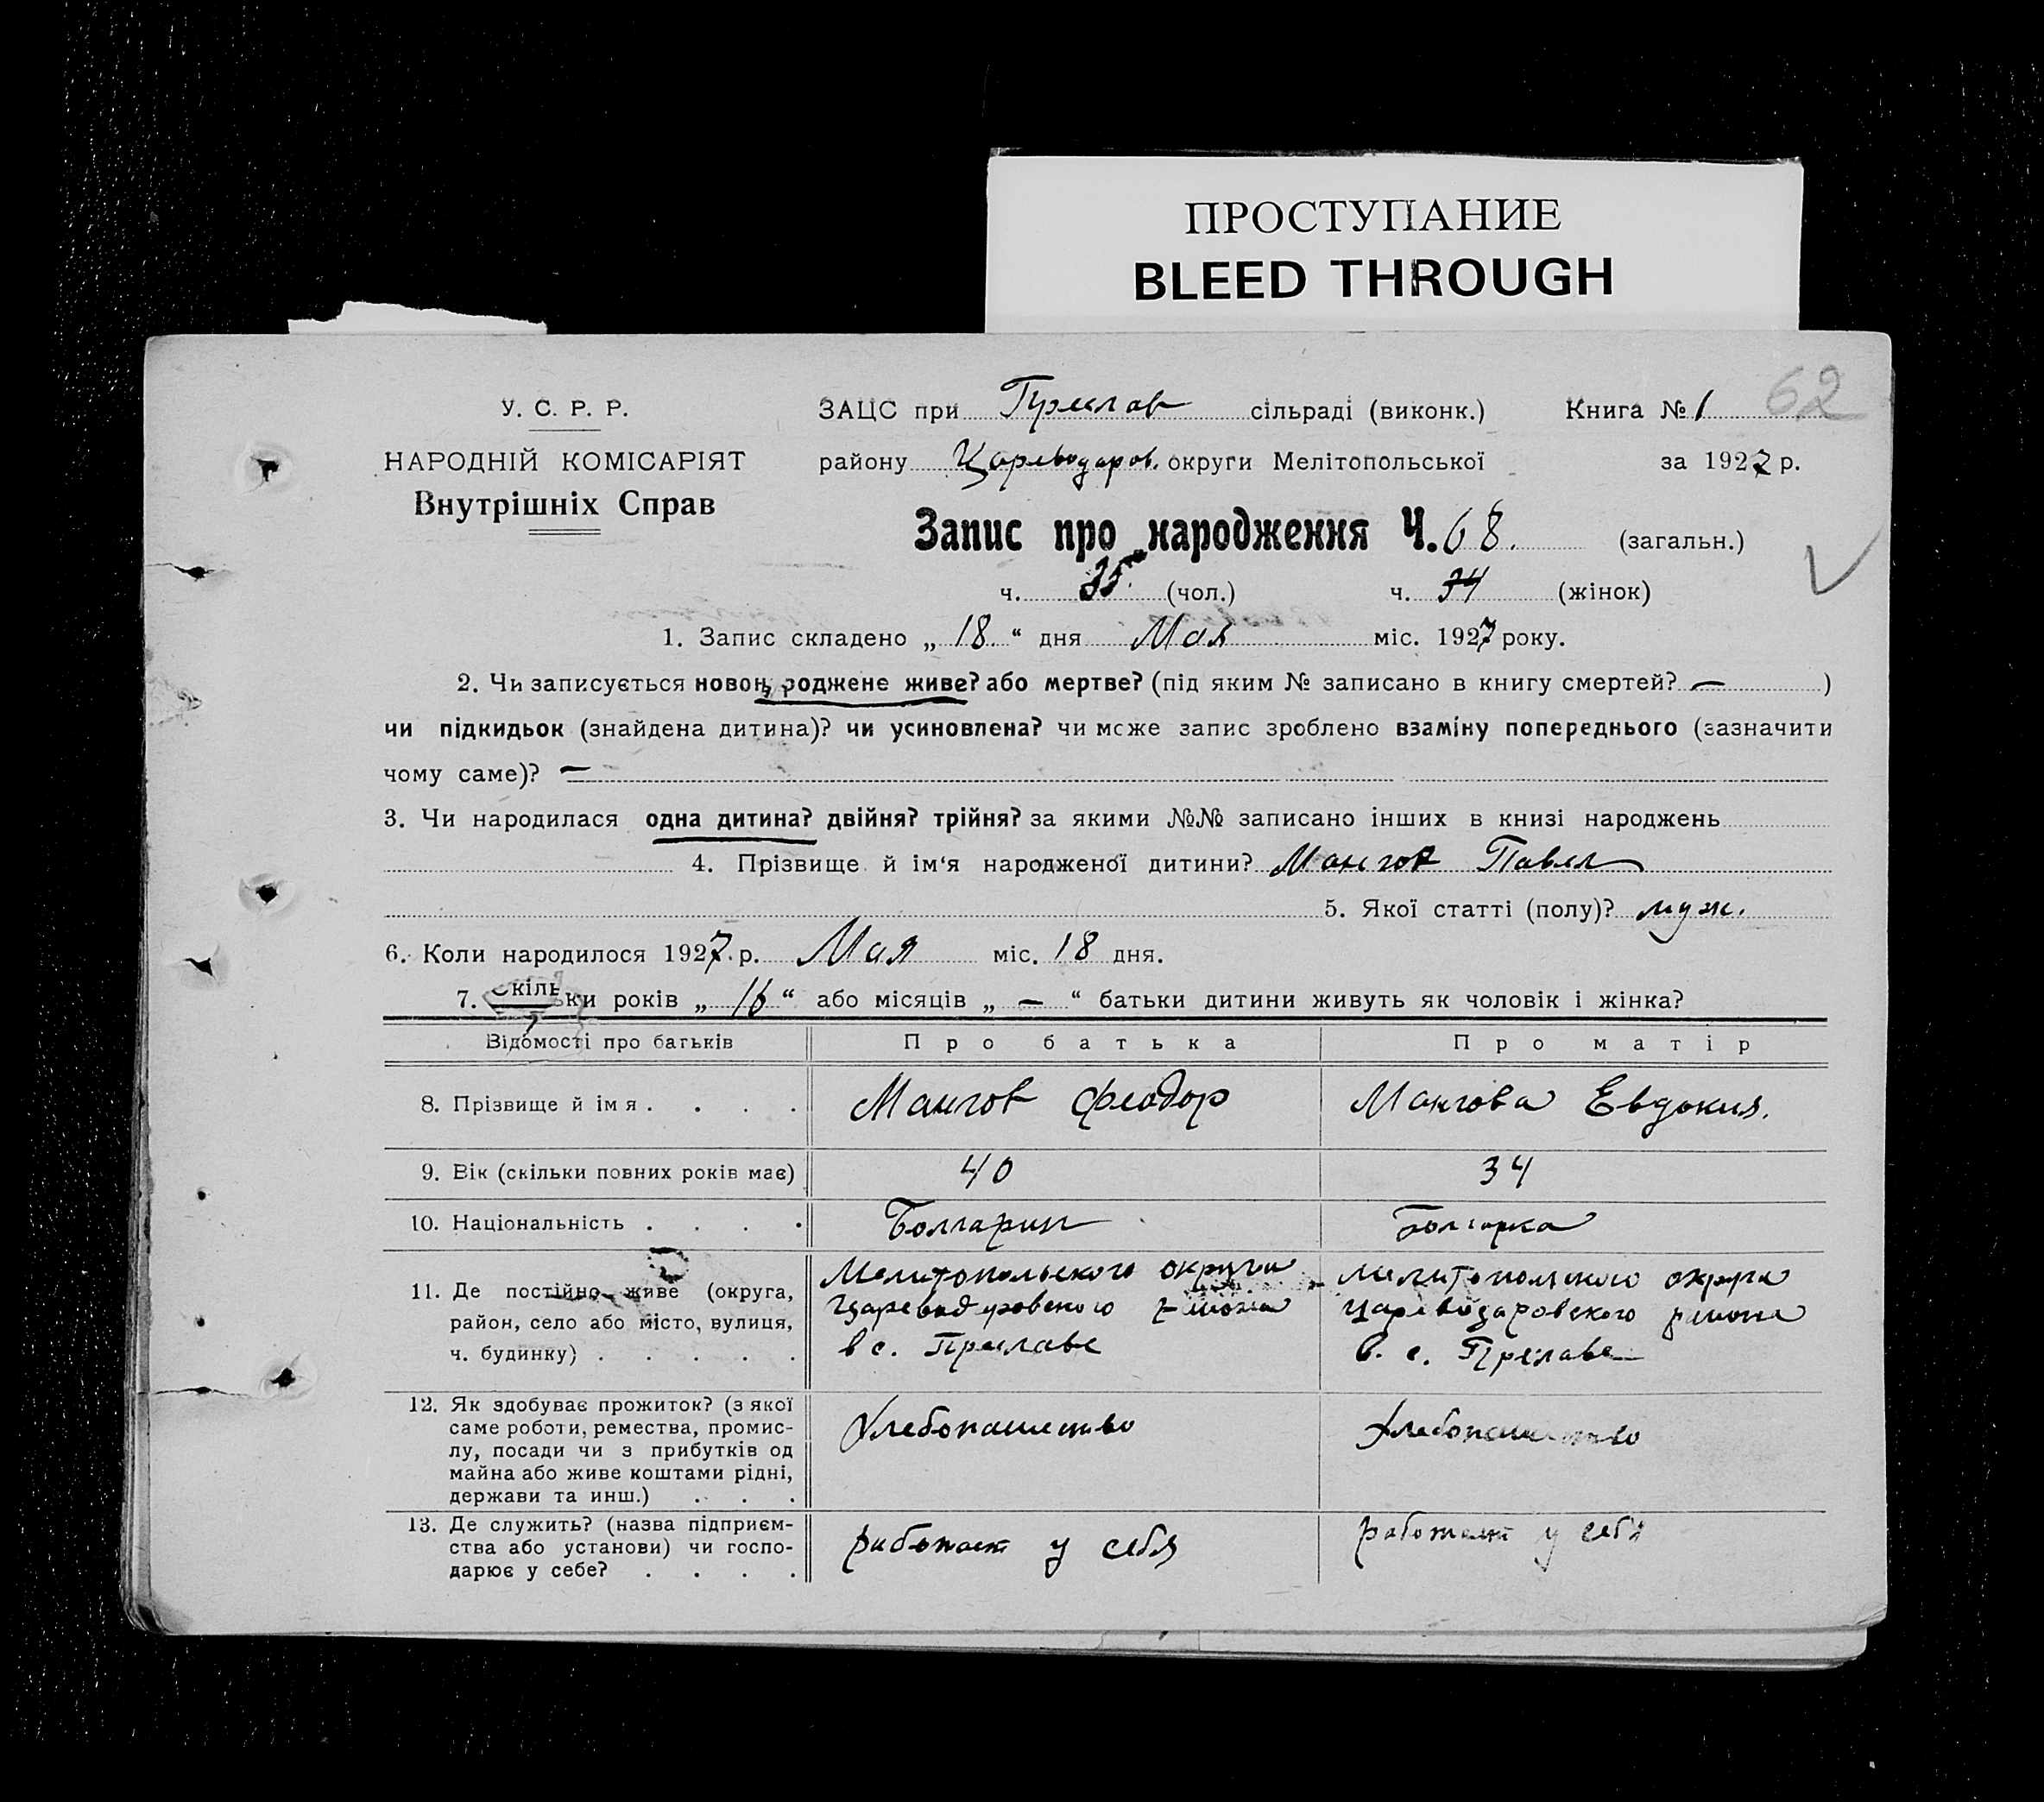 ПРОСТУПАНИЕ
BLEED THROUGH
62
У. С. Р. Р.
НАРОДНІЙ КОМІСАРІЯТ
Внутрішніх Справ
ЗАЦС при Преслав сільраді (виконк.) Книга № 1
району Цареводаров. округи Мелітопольської за 1927 р.
Запис про народження Ч. 68. (загальн.)
ч. 35 (чол.) ч. 34 (жінок)
1. Запис складено „ 18 “ дня Мая міс. 1927 року.
2. Чи записується новонароджене живе? або мертве? (під яким № записано в книгу смертей? — )
чи підкидьок (знайдена дитина)? чи усиновлена? чи може запис зроблено взаміну попереднього (зазначити
чому саме)? —
3. Чи народилася одна дитина? двійня? трійня? за якими №№ записано інших в книзі народжень
4. Прізвище й ім‘я народженої дитини? Мангов Павел
5. Якої статті (полу)? муж.
6. Коли народилося 1927 р. Мая міс. 18 дня.
7. Скільки років „ 16 “ або місяців „ — “ батьки дитини живуть як чоловік і жінка?
Відомості про батьків Про батька Про матір
8. Прізвище й імя . . . . Мангов Феодор Мангова Евдокия.
9. Вік (скільки повних років має) 40 34
10. Національність . . . . Болгарин Болгарка
11. Де постійно живе (округа, Мелитопольского округа Мелитопольского округа
район, село або місто, вулиця, Цареводаровского района Цареводаровского района
ч. будинку) . . . . . в с. Преславе в. с. Преславе
12. Як здобуває прожиток? (з якої
саме роботи, ремества, промис- Хлебопашество Хлебопашество
лу, посади чи з прибутків од
майна або живе коштами рідні,
держави та инш.) . . .
13. Де служить? (назва підприєм-
ства або установи) чи госпо- работает у себя работает у себя
дарює у себе? . . . .